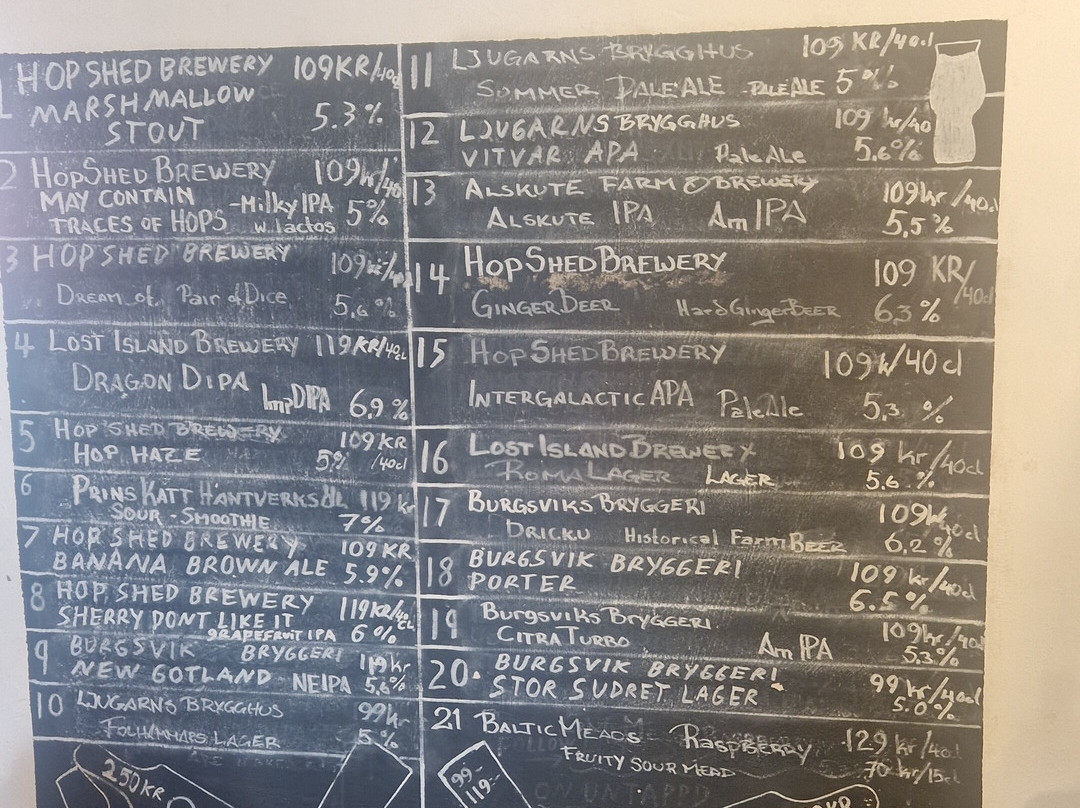 1 HOP SHED BREWERY 109KR/40cl
MARSHMALLOW
STOUT 5.3%
2 HOPSHED BREWERY 109kr/40
MAY CONTAIN -Milky IPA 5%
TRACES OF HOPS w. lactos
3 HOP SHED BREWERY 109kr/40
DREAM of Pair of Dice 5,6%
4 LOST ISLAND BREWERY 119KR/40cl
DRAGON DIPA
ImpDIPA 6,9%
5 HOP SHED BREWERY 109KR
HOP HAZE 5% /40cl
6 PRINS KATT HANTVERKSÖL 119 kr
SOUR - SMOOTHIE 7%
7 HOP SHED BREWERY 109KR
BANANA BROWN ALE 5.9%
8 HOP SHED BREWERY 119KR/40CL
SHERRY DONT LIKE IT
GRAPEFRUIT IPA 6%
9 BURGSVIK BRYGGERI 119kr
NEW GOTLAND NEIPA 5,6%
10 LJUGARNS BRYGGHUS 99kr
FOLHAMMARS LAGER 5%
250KR
11 LJUGARNS BRYGGHUS 109 KR/40cl
SOMMER PALE ALE -PALE ALE 5%
12 LJUGARNS BRYGGHUS 109 kr/40
VITVAR APA Pale Ale 5,6%
13 ALSKUTE FARM & BREWERY 109kr/40cl
ALSKUTE IPA Am IPA 5,5%
14 HOP SHED BREWERY 109 KR/40cl
GINGER BEER Hard Ginger BEER 6,3%
15 HOP SHED BREWERY 109kr/40cl
INTERGALACTIC APA Pale Ale 5,3 %
16 LOST ISLAND BREWERY 109 kr/40cl
ROMA LAGER LAGER 5,6 %
17 BURGSVIKS BRYGGERI 109kr/40cl
DRICKU Historical Farm BEER 6,2 %
18 BURGSVIK BRYGGERI 109 kr/40cl
PORTER 6.5%
19 Burgsviks Bryggeri. 109kr/40cl
CITRA TURBO Am IPA 5,3%
20. BURGSVIK BRYGGERI 99kr/40cl
STOR SUDRET LAGER 5.0%
21 BALTIC MEADS Raspberry 129 kr/40cl
FRUITY SOUR MEAD 70 kr/15cl
99:-
119:-
ON UNTAPPD